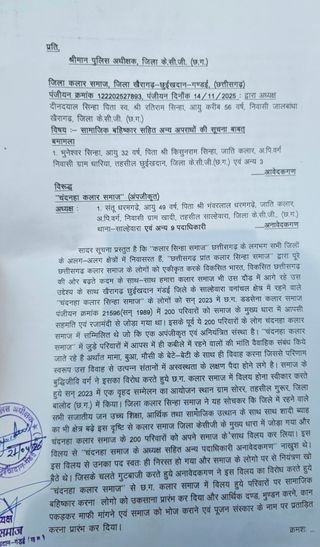 प्रति,
श्रीमान पुलिस अधीक्षक, जिला के.सी.जी (छ.ग.)
जिला कलार समाज, जिला खैरागढ़–छुईखदान–गण्डई, (छत्तीसगढ़)
पंजीयन क्रमांक 122202527893, पंजीयन दिनाँक 14/11/2025 : द्वारा अध्यक्ष
दीनदयाल सिन्हा पिता स्व. श्री रतिराम सिन्हा, आयु करीब 56 वर्ष, निवासी जालबांधा
खैरागढ़, जिला के.सी.जी.(छ.ग.)
विषय :– सामाजिक बहिष्कार सहित अन्य अपराधों की सूचना बाबत्
बगामला
: 1. भुनेश्वर सिन्हा, आयु 32 वर्ष, पिता श्री किसुनराम सिन्हा, जाति कलार, अ.पि.वर्ग
निवासी ग्राम धारिया, तहसील छुईखदान, जिला के.सी.जी.(छ.ग.) एवं अन्य 3
आवेदकगण
विरूद्ध
"चंदनहा कलार समाज" (अपंजीकृत)
अध्यक्ष : 1. संतू धरमगढ़े, आयु 49 वर्ष, पिता श्री भंवरलाल धरमगढ़े, जाति कलार,
अ.पि.वर्ग, निवासी ग्राम खादी, तहसील साल्हेवारा, जिला के.सी.जी., (छ.ग.)
थाना–साल्हेवारा एवं अन्य 9 पदाधिकारी अनावेदकगण
सादर सूचना प्रस्तुत है कि "कलार सिन्हा समाज" छत्तीसगढ़ के लगभग सभी जिलों
के अलग–अलग क्षेत्रों में निवासरत हैं, "छत्तीसगढ़ प्रांत कलार सिन्हा समाज" द्वारा पूरे
छत्तीसगढ़ कलार समाज के लोगों को एकीकृत करके विकसित भारत, विकसित छत्तीसगढ़
की ओर बढ़ते कदम की साथ–साथ हमारा कलार समाज भी उस दौड़ में आगे रहे उस
उद्देश्य के साथ खैरागढ़ छुईखदान गंडई जिले के साल्हेवारा वनांचल क्षेत्र में रहने वाले
"चंदनहा कलार समाज" के लोगों को सन् 2023 में छ.ग. डडसेना कलार समाज
पंजीयन क्रमांक 21596(सन् 1989) में 200 परिवारों को समाज के मुख्य धारा में आपसी
सहमती एवं रजामंदी से जोड़ा गया था। इसके पूर्व ये 200 परिवारों के लोग चंदनहा कलार
समाज में सम्मिलित थे जो कि एक अपंजीकृत एवं अनियंत्रित संस्था है। "चंदनहा कलार
समाज" में जुड़े परिवारों में आपस में ही कबीले में रहने वालों की भांति वैवाहिक संबंध किये
जाते रहे हैं अर्थात मामा, बुआ, मौसी के बेटे–बेटी के साथ ही विवाह करना जिससे परिणाम
स्वरूप उस विवाह से उत्पन्न संतानों में अस्वस्थता के लक्षण पैदा होने लगे है। समाज के
बुद्धिजीवि वर्ग ने इसका विरोध करते हुये छ.ग. कलार समाज में विलय होना स्वीकार करते
हुये सन् 2023 में एक वृहद सम्मेलन का आयोजन स्थान ग्राम सोरर, तहसील गुरूर, जिला
बालोद (छ.ग.) में किया। जिला कलार सिन्हा समाज ने यह सोचकर कि जिले में रहने वाले
सभी सजातीय जन उच्च शिक्षा, आर्थिक तथा सामाजिक उत्थान के साथ साथ शादी ब्याह
का भी क्षेत्र बढ़े इस दृष्टि से कलार समाज जिला केसीजी के मुख्य धारा में जोड़ा गया और
चंदनहा कलार समाज के 200 परिवारों को अपने समाज के साथ विलय कर लिया। इस
विलय से "चंदनहा कलार समाज के अध्यक्ष सहित अन्य पदाधिकारी अनावेदकगण" नाखुश थे।
इस विलय से उनका पद स्वतः ही निरस्त हो गया और समाज के लोगों पर से नियंत्रण खो
बैठे थे। जिसके चलते गुटबाजी करते हुये अनावेदकगण ने इस विलय का विरोध करते हुये
"चंदनहा कलार समाज" से छ.ग. कलार समाज में विलय हुये परिवारों पर सामाजिक
बहिष्कार करना लोगों को उकसाना प्रारंभ कर दिया और आर्थिक दण्ड, मुण्डन करने, कान
पकड़कर माफी मांगने एवं समाज को भोज कराने एवं पूजन संस्कार के नाम पर प्रताड़ित
करना प्रारंभ कर दिया।
क्रमशः ..